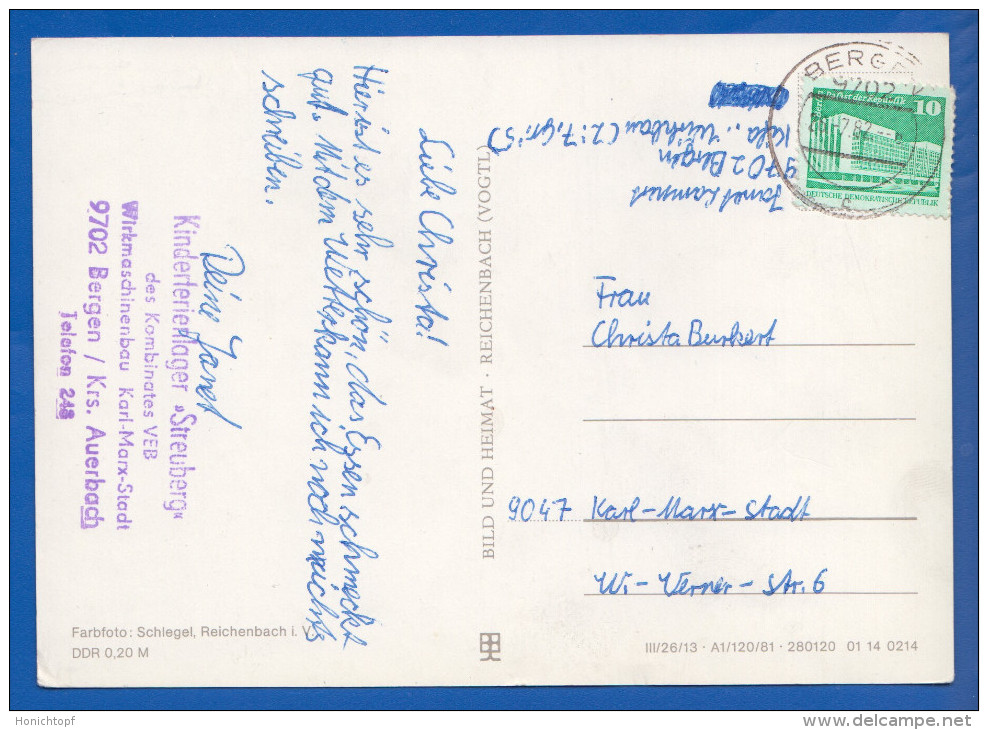 Liebe Christa!
Hier ist es sehr schön, das Essen schmeckt
gut. Mit dem Wetter kann ich noch nichts
schreiben.
Deine Janet
Kinderferienlager »Streuberg«
des Kombinates VEB
Wirkmaschinenbau Karl-Marx-Stadt
9702 Bergen / Krs. Auerbach
Telefon 248
Farbfoto: Schlegel, Reichenbach i. V.
DDR 0,20 M
BILD UND HEIMAT · REICHENBACH (VOGTL)
Janet
9702 Bergen
Kila „Wirkbau (Z:7, Gr:5)
BERGEN
9702
10
Palast der Republik
DEUTSCHE DEMOKRATISCHE REPUBLIK
Frau
Christa Burkert
9047 Karl-Marx-Stadt
Wi-Werner-Str. 6
III/26/13 · A1/120/81 · 280120 01 14 0214
Honichtopf
www.delcampe.net